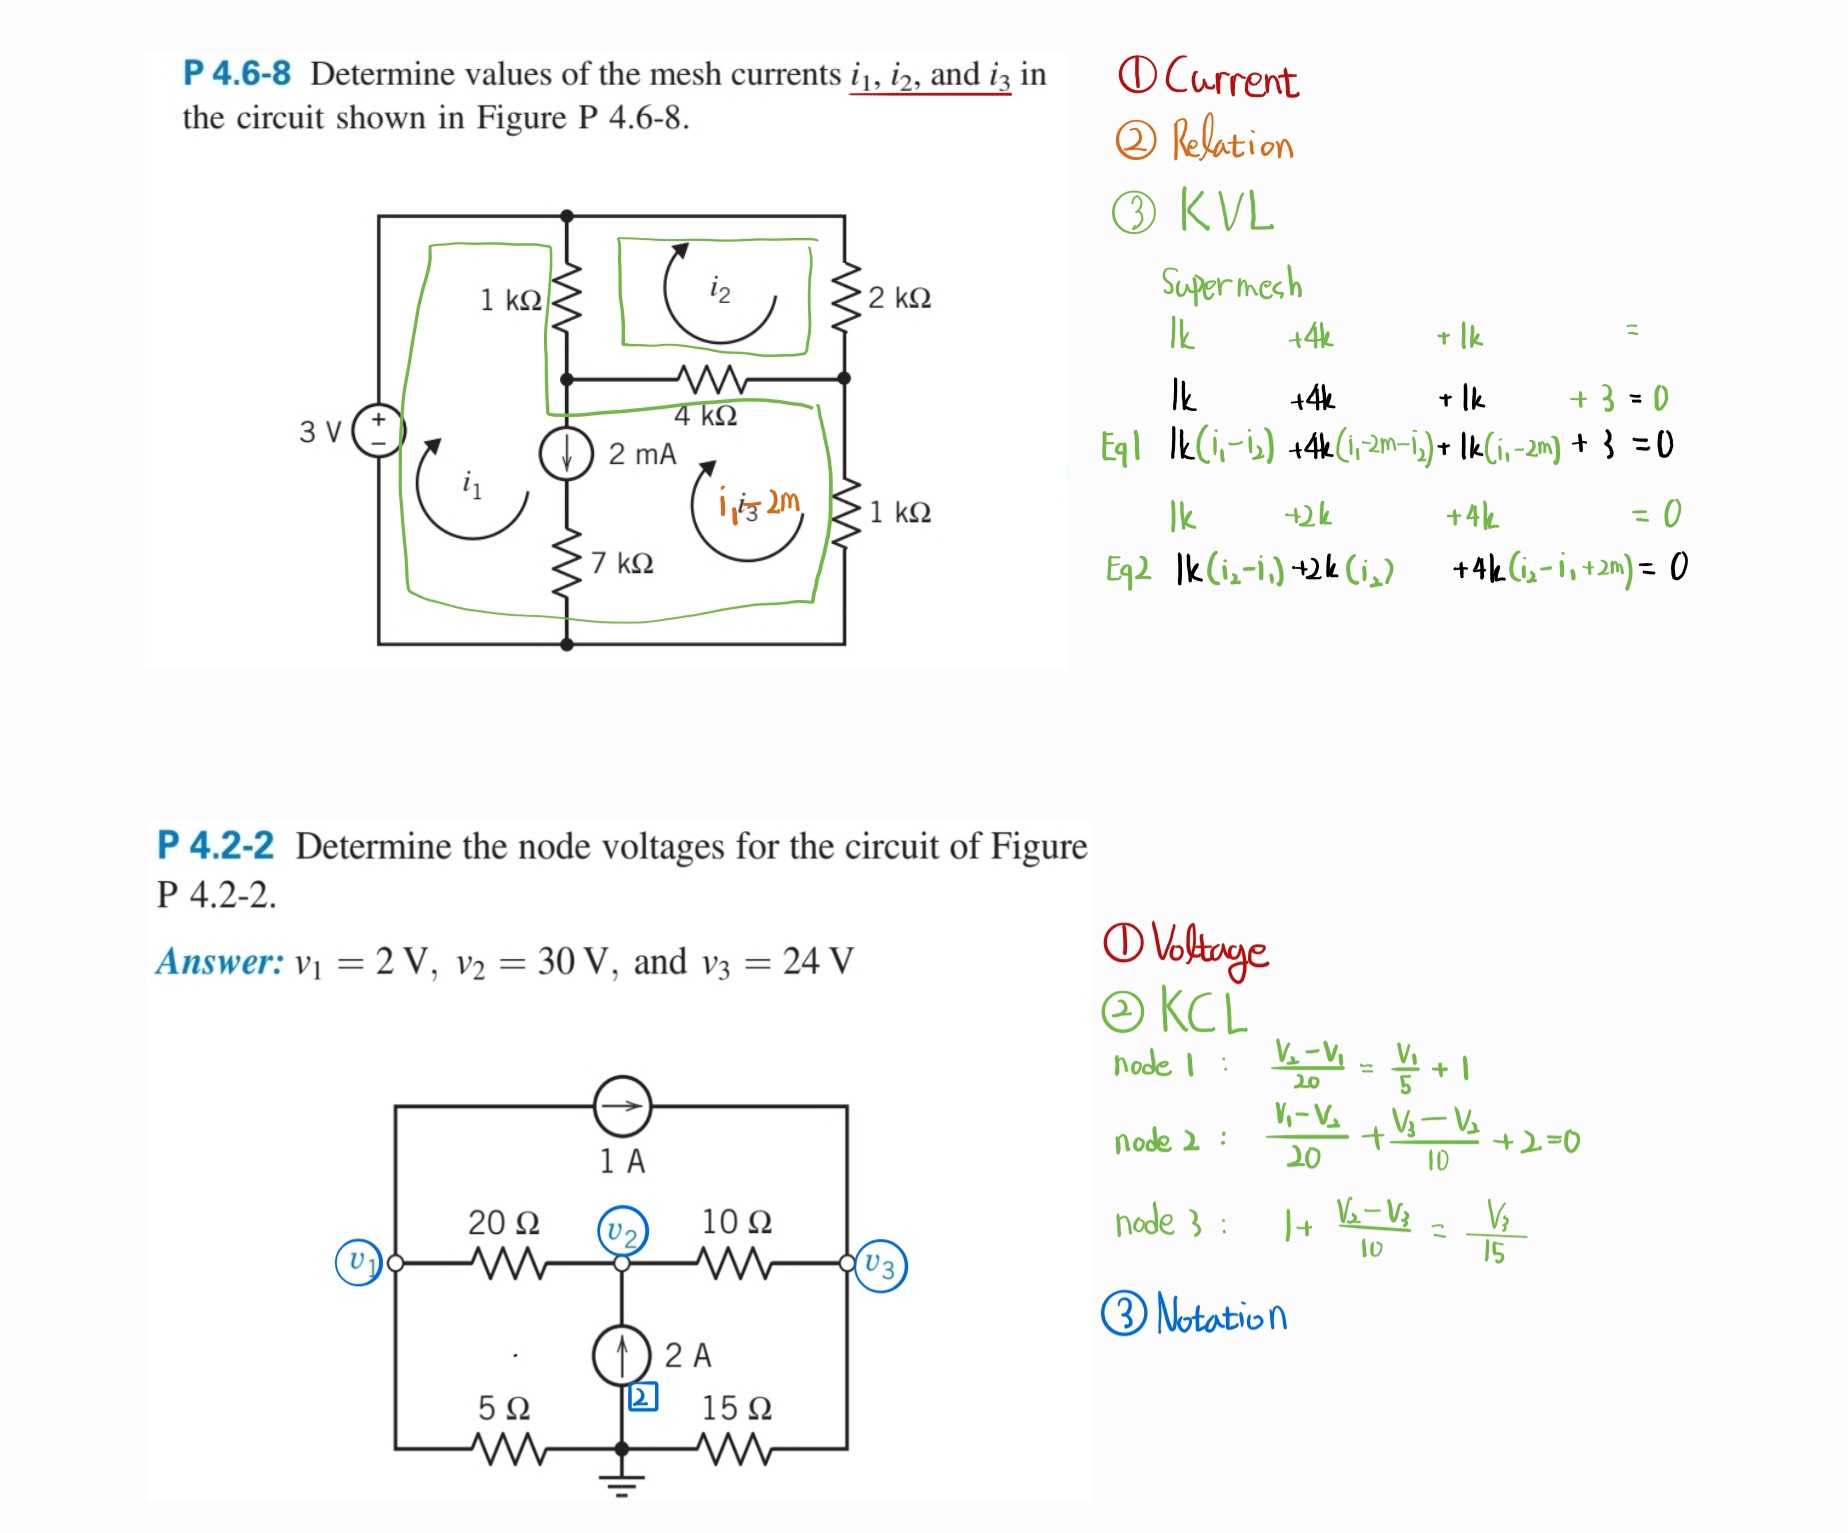 P 4.6-8 Determine values of the mesh currents i₁, i₂, and i₃ in
the circuit shown in Figure P 4.6-8.
1 kΩ
i₂
2 kΩ
4 kΩ
3 V
+
−
2 mA
i₁
i₃
i₁-2m
1 kΩ
7 kΩ
① Current
② Relation
③ KVL
Supermesh
1k +4k +1k =
1k +4k +1k +3 = 0
Eq1 1k(i₁-i₂) +4k(i₁-2m-i₂)+1k(i₁-2m) +3 =0
1k +2k +4k = 0
Eq2 1k(i₂-i₁)+2k(i₂) +4k(i₂-i₁+2m)= 0
P 4.2-2 Determine the node voltages for the circuit of Figure
P 4.2-2.
Answer: v₁ = 2 V, v₂ = 30 V, and v₃ = 24 V
1 A
20 Ω
v₂
10 Ω
v₁
v₃
2 A
2
5 Ω
15 Ω
① Voltage
② KCL
node 1 : (V₂-V₁)/20 = V₁/5 + 1
node 2 : (V₁-V₂)/20 + (V₃-V₂)/10 +2=0
node 3 : 1+ (V₂-V₃)/10 = V₃/15
③ Notation